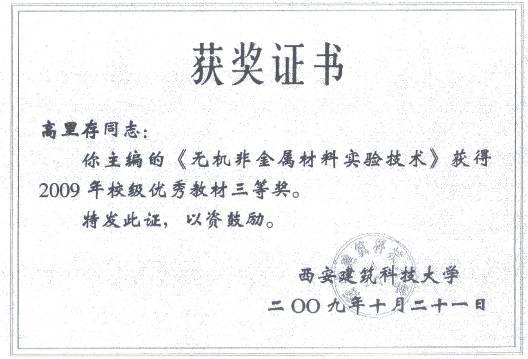 获奖证书
高里存同志：
你主编的《无机非金属材料实验技术》获得
2009年校级优秀教材三等奖。
特发此证，以资鼓励。
西安建筑科技大学
二〇〇九年十月二十一日